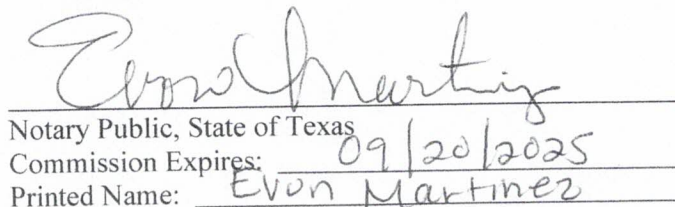 Evon Martinez
Notary Public, State of Texas
Commission Expires: 09/20/2025
Printed Name: Evon Martinez